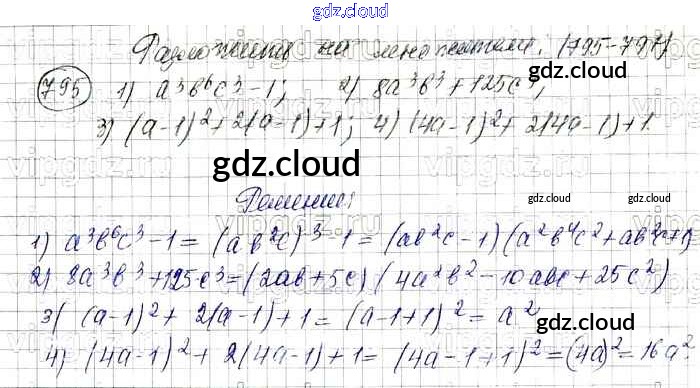 gdz.cloud
Разложить на множители. (795-797)
795 1) a³b⁶c³-1; 2) 8a³b³+125c³;
3) (a-1)²+2(a-1)+1; 4) (4a-1)²+2(4a-1)+1.
gdz.cloud
gdz.cloud
Решение:
gdz.cloud gdz.cloud
1) a³b⁶c³-1=(ab²c)³-1=(ab²c-1)(a²b⁴c²+ab²c+1)
2) 8a³b³+125c³=(2ab+5c)(4a²b²-10abc+25c²)
3) (a-1)²+2(a-1)+1=(a-1+1)²=a²
gdz.cloud
4) (4a-1)²+2(4a-1)+1=(4a-1+1)²=(4a)²=16a²